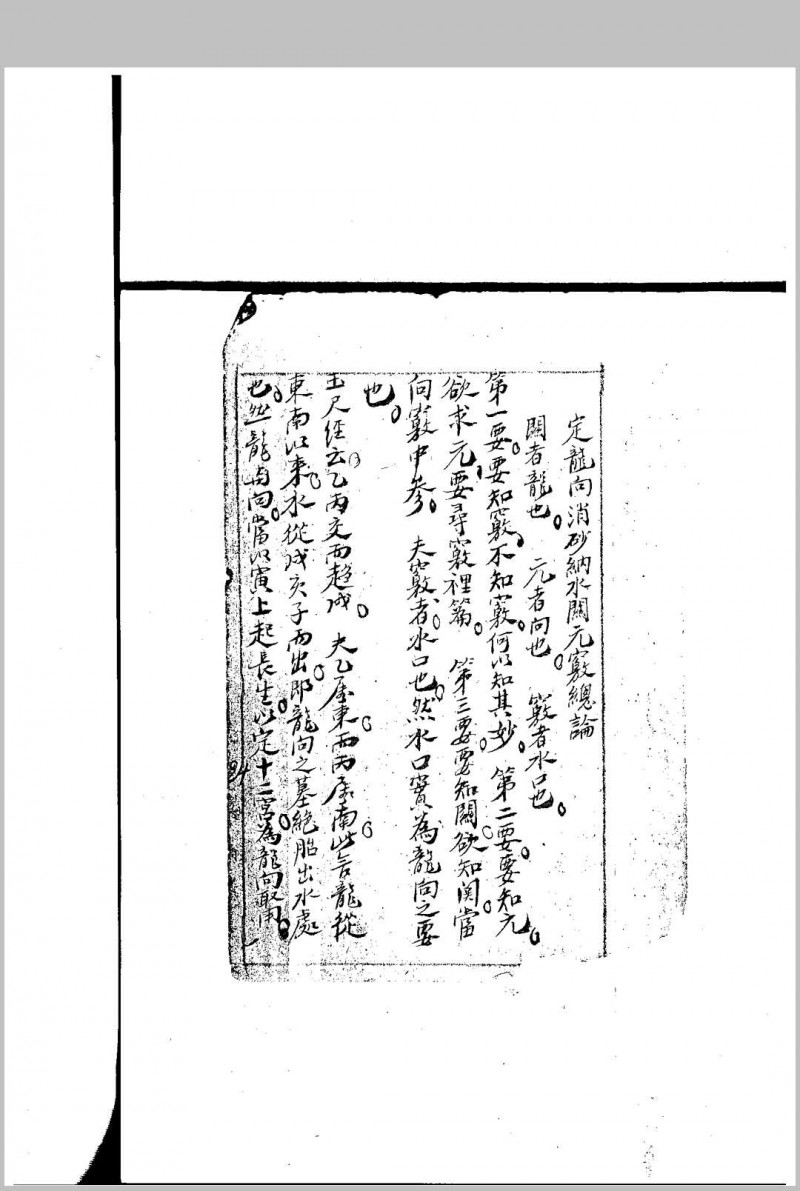 定龍向消砂納水關元竅總論
關者龍也。元者向也。竅者水口也。
第一要。要知竅。不知竅。何以知其妙。第二要。要知元。
欲求元。要尋竅裡篇。第三要。要知關。欲知関。當
向竅中參。夫竅者。水口也。然水口實為龍向之要
也。
玉尺經云。乙丙交而趨戌。夫乙屬東。而丙屬南。此言龍從
東南以來。水從戌亥子而出。即龍向之墓絕胎出水處
也。然龍與向。當以寅上起長生。以定十二宮。為龍向取用。